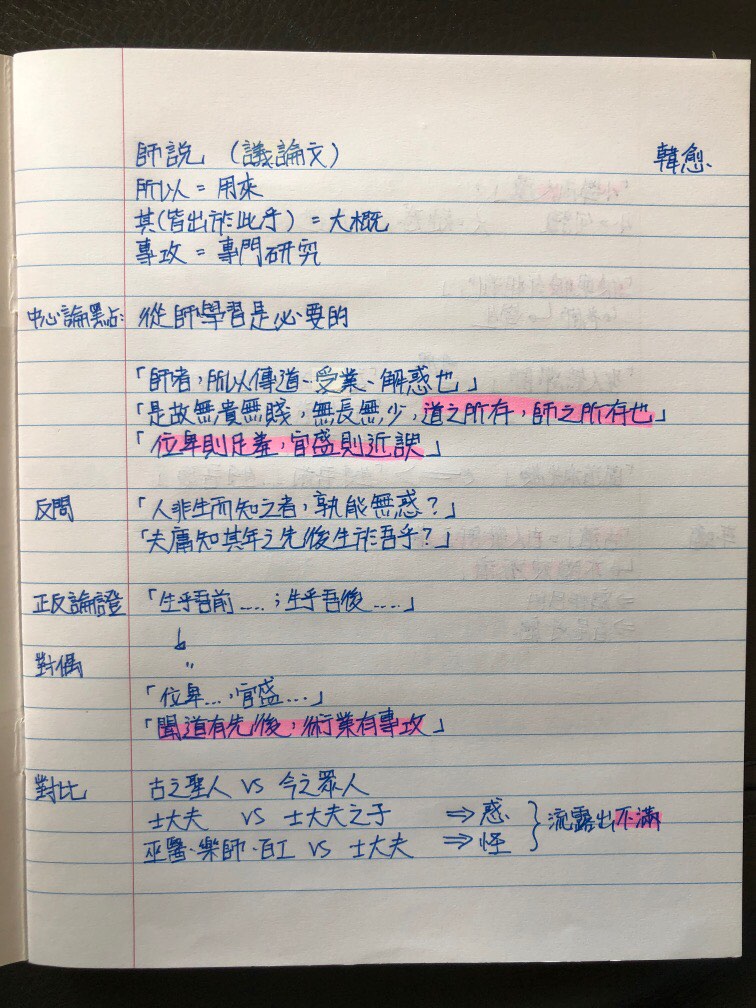 師説 (議論文) 韓愈.
所以 = 用來
其(皆出於此乎) = 大概
專攻 = 專門研究
中心論點: 從師學習是必要的
「師者，所以傳道、受業、解惑也」
「是故無貴無賤，無長無少，道之所存，師之所存也」
「位卑則足羞，官盛則近諛」
反問 「人非生而知之者，孰能無惑？」
「夫庸知其年之先後生於吾乎？」
正反論證 「生乎吾前……；生乎吾後……」
對偶 〃
「位卑…，官盛…」
「聞道有先後，術業有專攻」
對比 古之聖人 VS 今之眾人
士大夫 VS 士大夫之子 ⇒ 惑 } 流露出不滿
巫醫·樂師·百工 VS 士大夫 ⇒ 怪